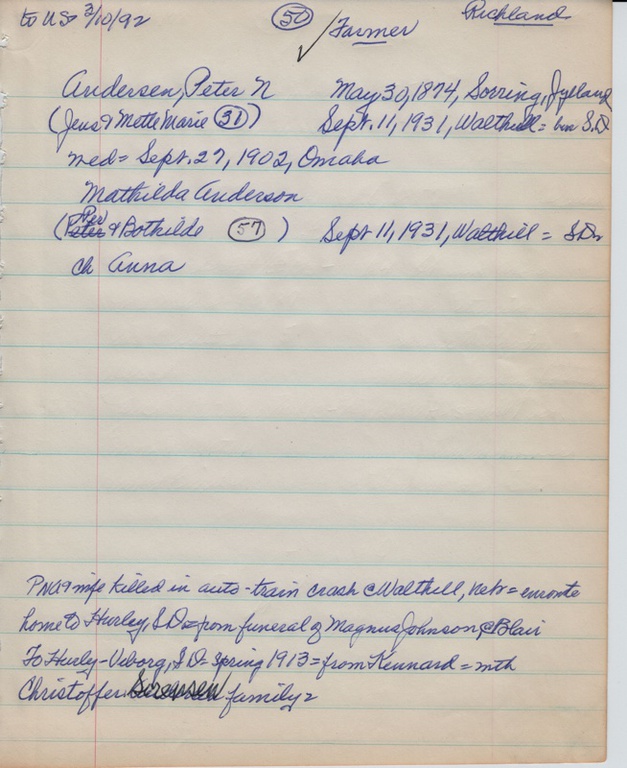 to US 3/10/92 (50) ✓ Farmer Richland
Andersen, Peter N May 30, 1874, Sorring, Jylland
(Jens & Mette Marie (31)) Sept. 11, 1931, Walthill = bur S.D
med = Sept. 27, 1902, Omaha
Mathilda Anderson
Per
(Peter & Bothilde (57) ) Sept 11, 1931, Walthill = S.D.
ch Anna
PNA & wife killed in auto-train crash @ Walthill, Nebr = enroute
home to Hurley, S.D. = from funeral of Magnus Johnson, @ Blair
To Hurly-Viborg, S.D = Spring 1913 = from Kennard = with
Christoffer Sorensen family =